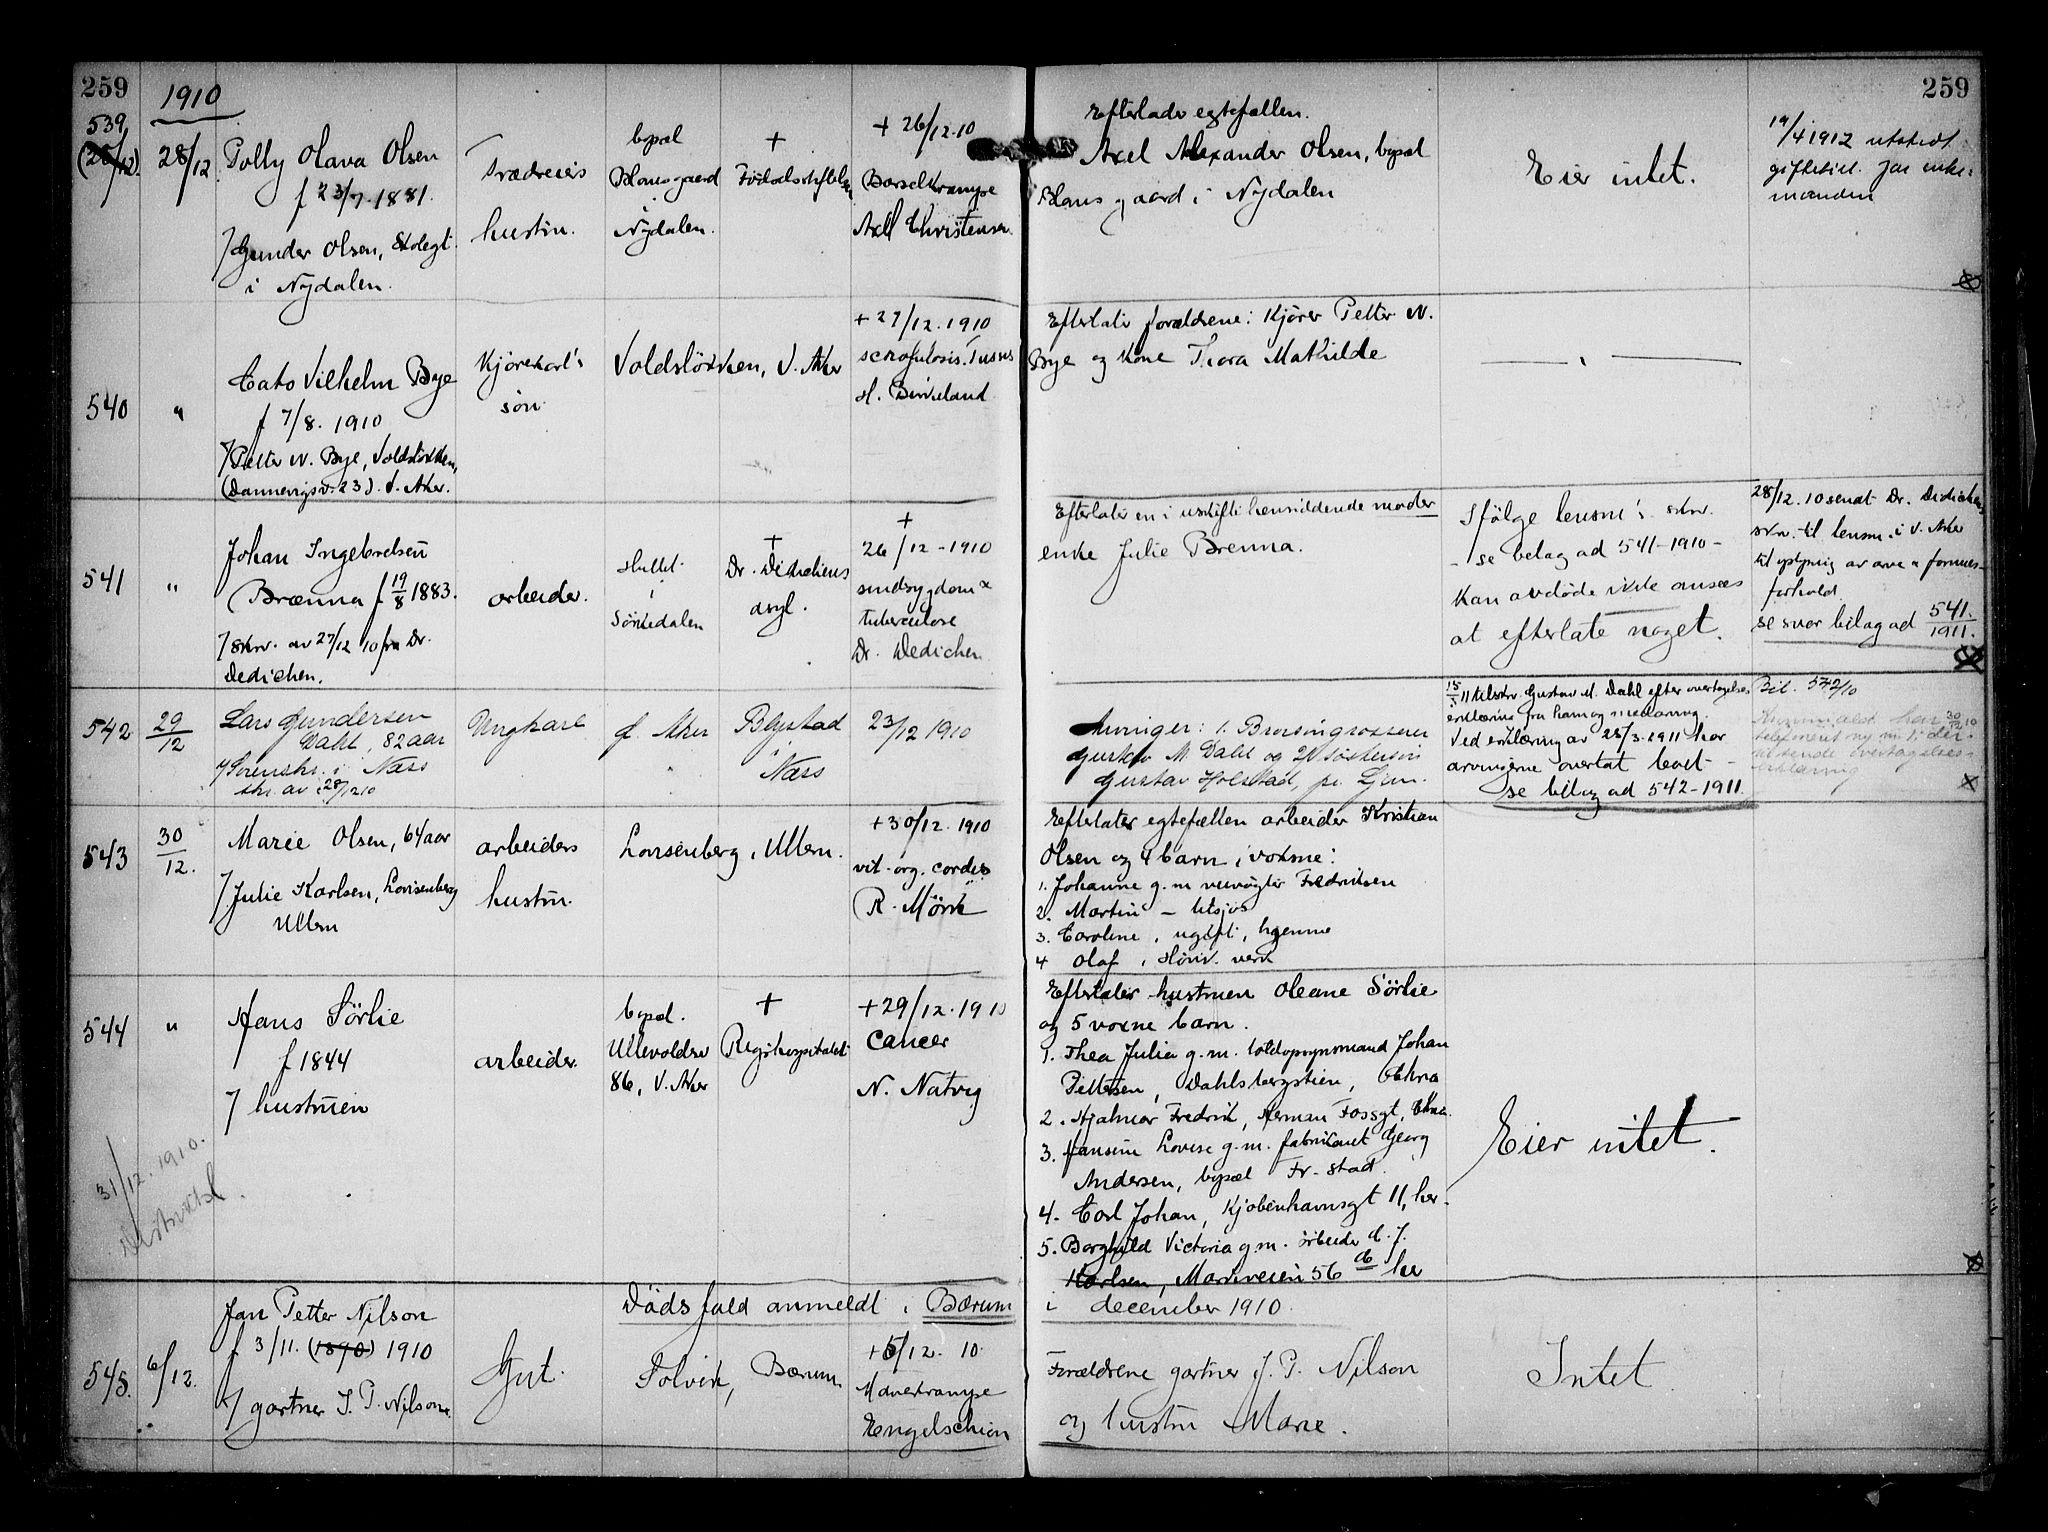 259
1910
259
539
(28/12)
28/12
Polly Olava Olsen
f 23/7. 1881.
Gunder Olsen,
i Nydalen.
hustru.
bopæl
i
Nydalen.
+
+ 26/12.10
Axel Christensen
Efterlader egtefællen.
Axel Alexander Olsen, bopæl
i Nydalen
Eier intet.
19/4 1912 utstedt
manden
540
"
Cato Vilhelm Bye
f 7/8. 1910
Petter N. Bye, Voldsløkken,
(Dannevigsv. 23). V. Aker.
Kjørekarl's
søn
Voldsløkken, V. Aker
+ 27/12. 1910
scrofulosis. Tusus
H. Birkeland
Efterlater forældrene: Kjører Petter N.
Bye og kone Thora Mathilde
— " —
541
"
Johan Ingebretsen
Brænna f 19/8 1883.
skr. av 27/12 10 fra Dr.
Dedichen.
arbeider.
i
Sørkedalen
+
Dr. Dedichens
asyl.
+
26/12 - 1910
sindssygdom &
tuberculose
Dr. Dedichen
Efterlater en i uskifte hensiddende moder
enke Julie Brenna.
Ifølge lensm's skr.
- se belag ad 541-1910 -
kan avdøde ikke ansees
at efterlate noget.
28/12. 10 sendt Dr. Dedichens
skr. til lensm. i V. Aker
til oplysning av arve & formues-
forhold.
se svar bilag ad 541/1911.
542
29/12
Lars Gundersen
Dahl, 82 aar
Sorenskr. i Næs
skr. av 28/12 10
Ungkarl
Ø. Aker
i
Næs
23/12 1910
Arvinger: 1. Brorsøn grosserer
Gustav M. Dahl og 2) søstersøn
Gustav Holstad, pr. Ljan.
15/1 11 tilskr. Gustav M. Dahl efter overtagelses
erklæring fra ham og medarving.
Ved erklæring av 28/3. 1911 har
arvingerne overtat boet -
se bilag ad 542-1911.
Bil. 542/10
543
30/12.
Marie Olsen, 64 aar
Julie Karlsen, Lovisenberg
Ullern
arbeiders
hustru.
Lovisenberg, Ullern.
+ 30/12. 1910
vit. org. cordis
R. Mørk
Efterlater egtefællen arbeider Kristian
Olsen og 4 barn, voksne:
1. Johanne g. m. Fredriksen
2. Martin - tilsjøs
3. Caroline, ugift, hjemme
4 Olaf,
544
"
Hans Sörlie
f 1844
hustruen
arbeider.
bopæl.
Ullevoldsv
86, V. Aker
+
Rigshospitalet
+ 29/12. 1910
Cancer
N. Natvig
Efterlater hustruen Oleane Sörlie
og 5 voxne barn.
1. Thea Julia g. m. toldopsynsmand Johan
Pettersen, Dahlsbergstien, Chra
2. Hjalmar Fredrik, Herman Fossgt, Chra.
3. Hansine Lovise g. m. fabrikant Georg
Andersen, bopæl Fr-stad.
4. Carl Johan, Kjøbenhavnsgt 11, her
5. Borghild Victoria g. m. arbeider d. J.
Karlsen, Markveien 56 her
Eier intet.
31/12. 1910.
Dödsfald anmeldt i Bærum
i december 1910.
545.
6/12.
Jan Petter Nilson
f 3/11. (1890) 1910
gartner J. P. Nilson.
Gut.
Solvik, Bærum
+ 5/12. 10.
Mavekrampe
Engelschiøn
Forældrene gartner J. P. Nilson
og hustru Marie.
Intet